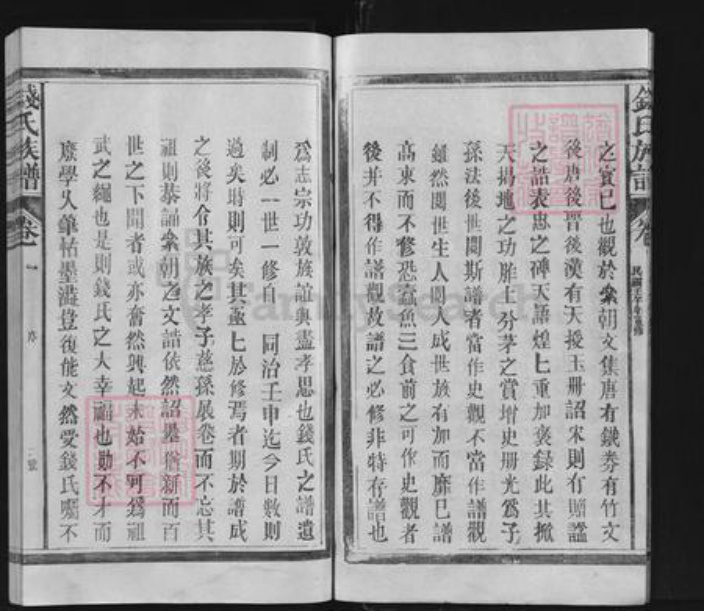 錢氏族譜 卷
民國壬午年重修
之實已也觀於彙朝文集唐有鐵劵有竹文
後唐後晉後漢有天授玉册詔宋則有贈謚
之誥表忠之碑天語煌煌上重加褒録此其掀
天揭地之功胙土分茅之賞增史册光爲子
孫法後世閱斯譜者當作史觀不當作譜觀
雖然閱世生人閱人成世族有加而靡已譜
高束而不修恐蠹魚三食前之可作史觀者
後并不得作譜觀故譜之必修非特存譜也
爲志宗功敦族誼與盡孝思也錢氏之譜遺
制必一世一修自 同治壬申迄今日數則
過矣時則可矣其亟亟於修焉者期於譜成
之後將令其族之孝子慈孫展卷而不忘其
祖則恭誦彙朝之文誥依然詔墨俗新而百
世之下聞者或亦奮然興起未始不可爲祖
武之繩也是則錢氏之大幸福也勛不才而
廢學久筆枯墨澁豈復能文然受錢氏囑不
錢氏族譜 卷一 序 二號